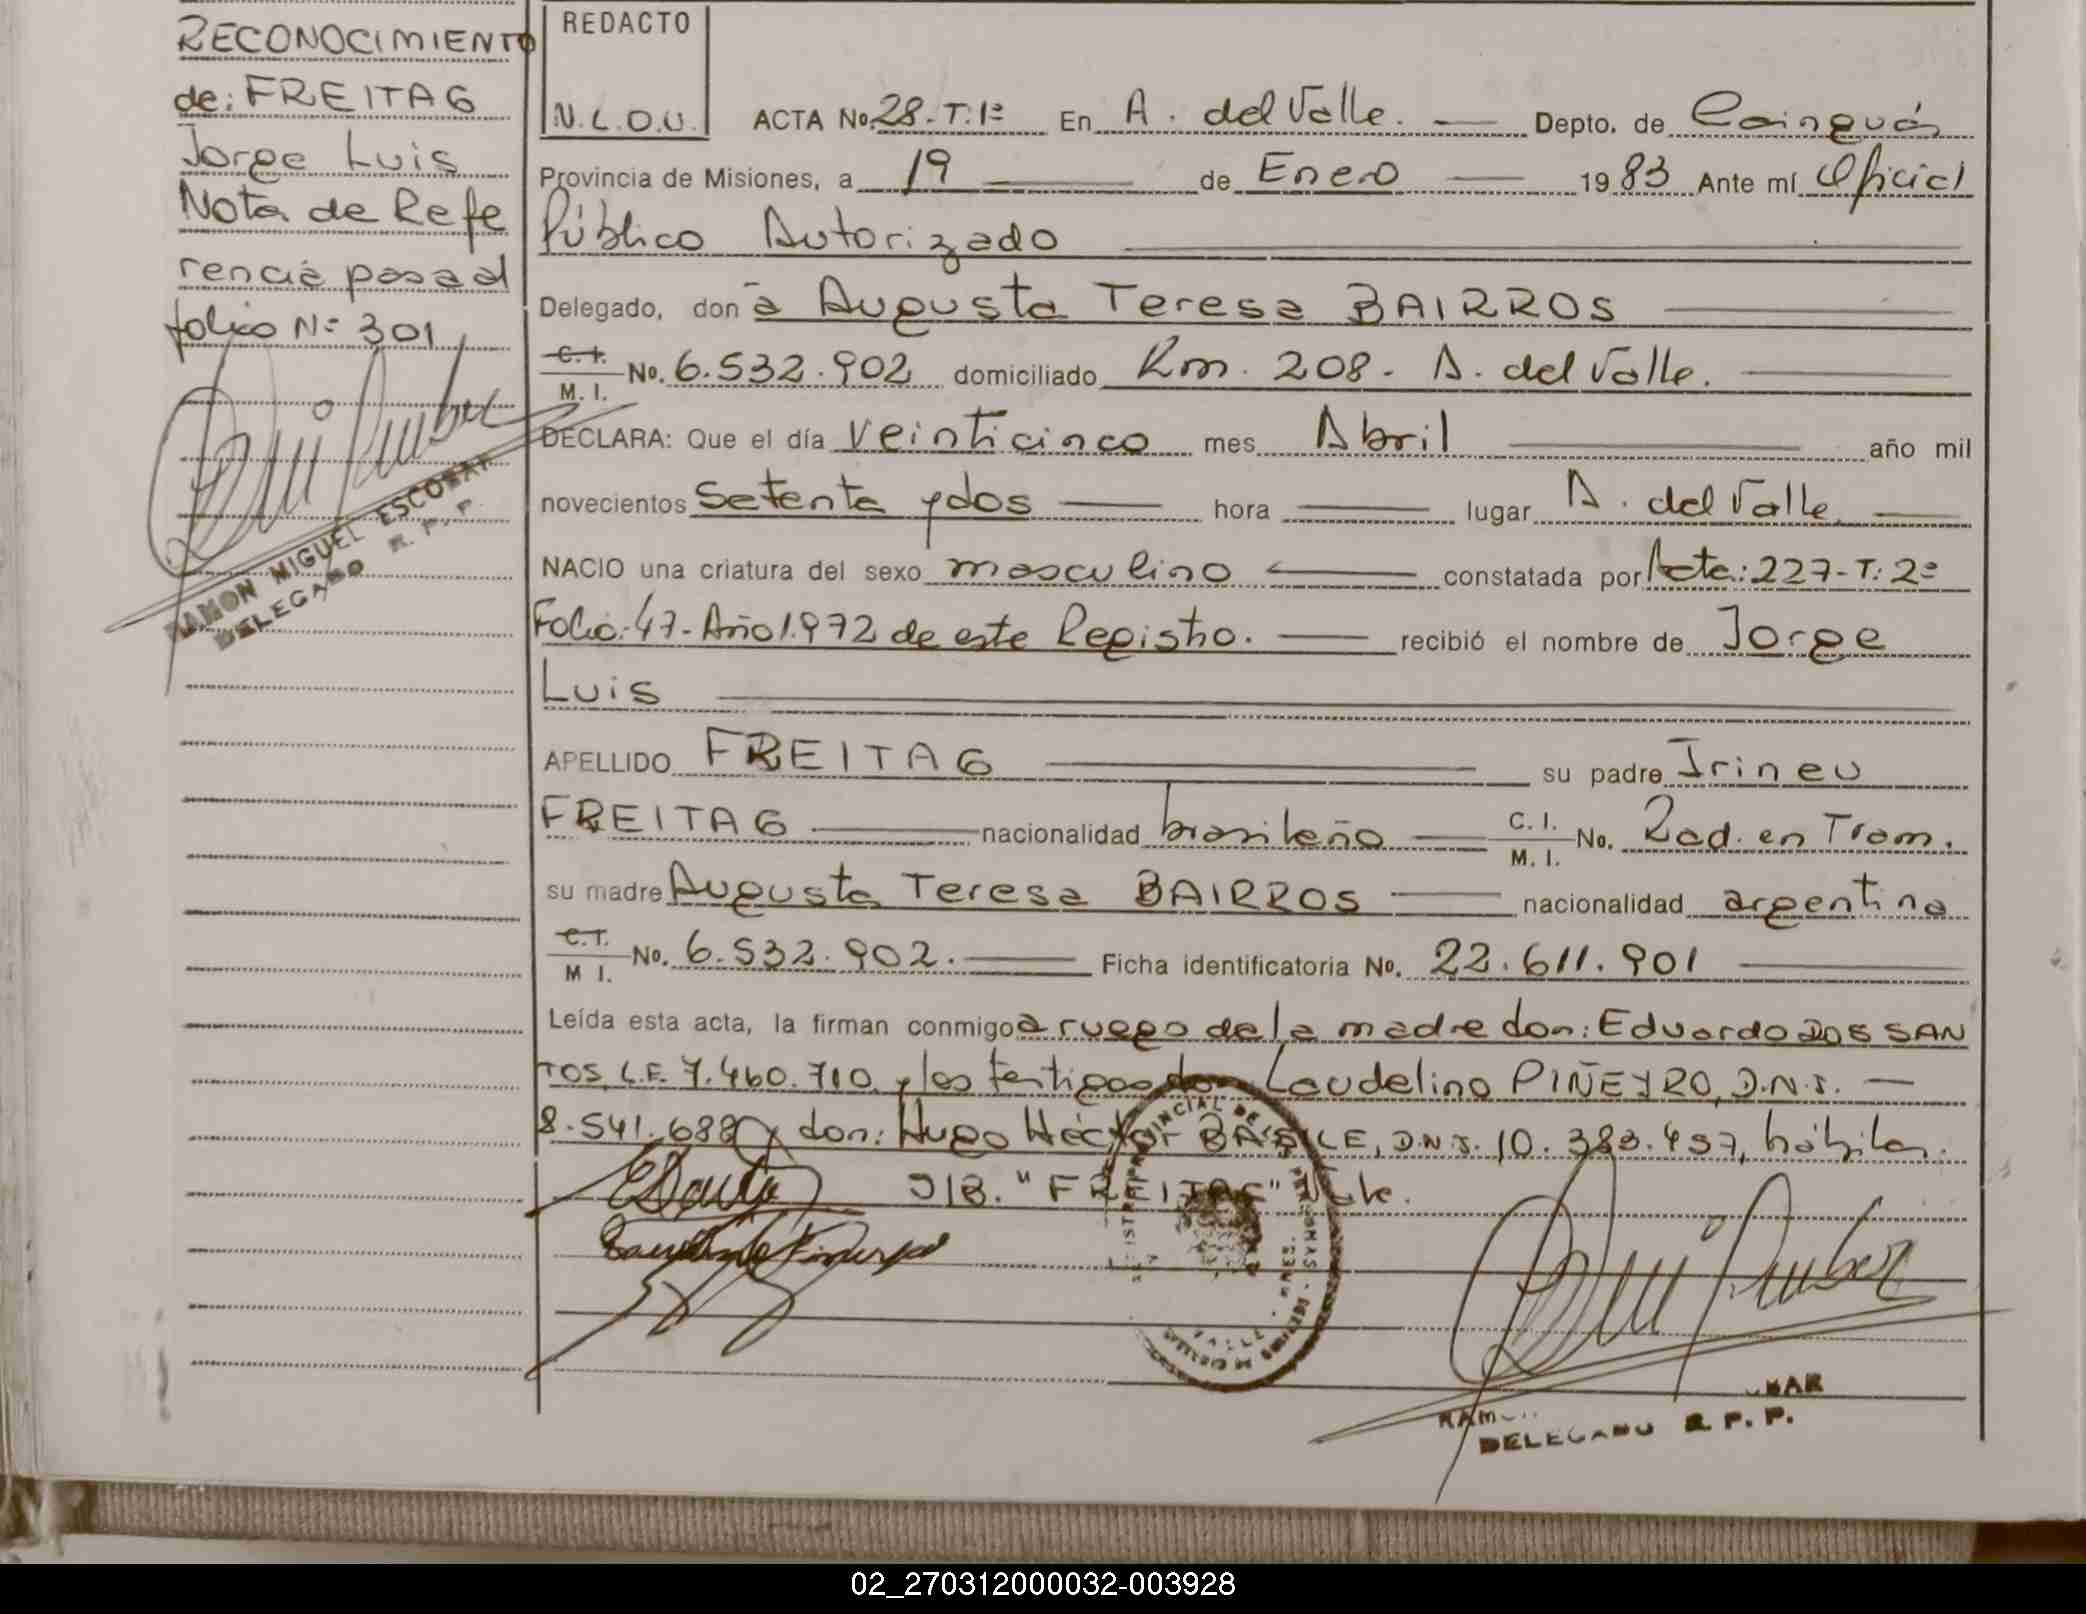 RECONOCIMIENTO
de: FREITAG
Jorge Luis
Nota de Refe
rencia pasa al
folio Nº 301
RAMON MIGUEL ESCOBAR
DELEGADO R. P. P.
REDACTO
N.L.O.U.
ACTA No. 28-T:1º En A. del Valle. Depto. de Cainguás
Provincia de Misiones, a 19 de Enero 1983 Ante mí Oficial
Público Autorizado
Delegado, don ã Augusta Teresa BAIRROS
C. I. M. I. No. 6.532.902 domiciliado Km. 208. A. del Valle.
DECLARA: Que el día veinticinco mes Abril año mil
novecientos Setenta y dos hora lugar A. del Valle
NACIO una criatura del sexo masculino constatada por Acta: 227-T: 2º
Folio: 47-Año 1.972 de este Registro. recibió el nombre de Jorge
Luis
APELLIDO FREITAG su padre Irineu
FREITAG nacionalidad brasileño C. I. M. I. No. Rad. en Tram.
su madre Augusta Teresa BAIRROS nacionalidad argentina
C. I. M I. No. 6.532.902. Ficha identificatoria No. 22.611.901
Leída esta acta, la firman conmigo a ruego de la madre don: Eduardo DOS SAN
TOS, L.E. 7.460.710, y los testigos don Laudelino PIÑEYRO, D.N.I.
8.541.688 y don: Hugo Héctor BASILE, D.N.I. 10.383.457, hábiles.
S/B. "FREITAG" Vale.
DELEGADO R. P. P.
02_270312000032-003928